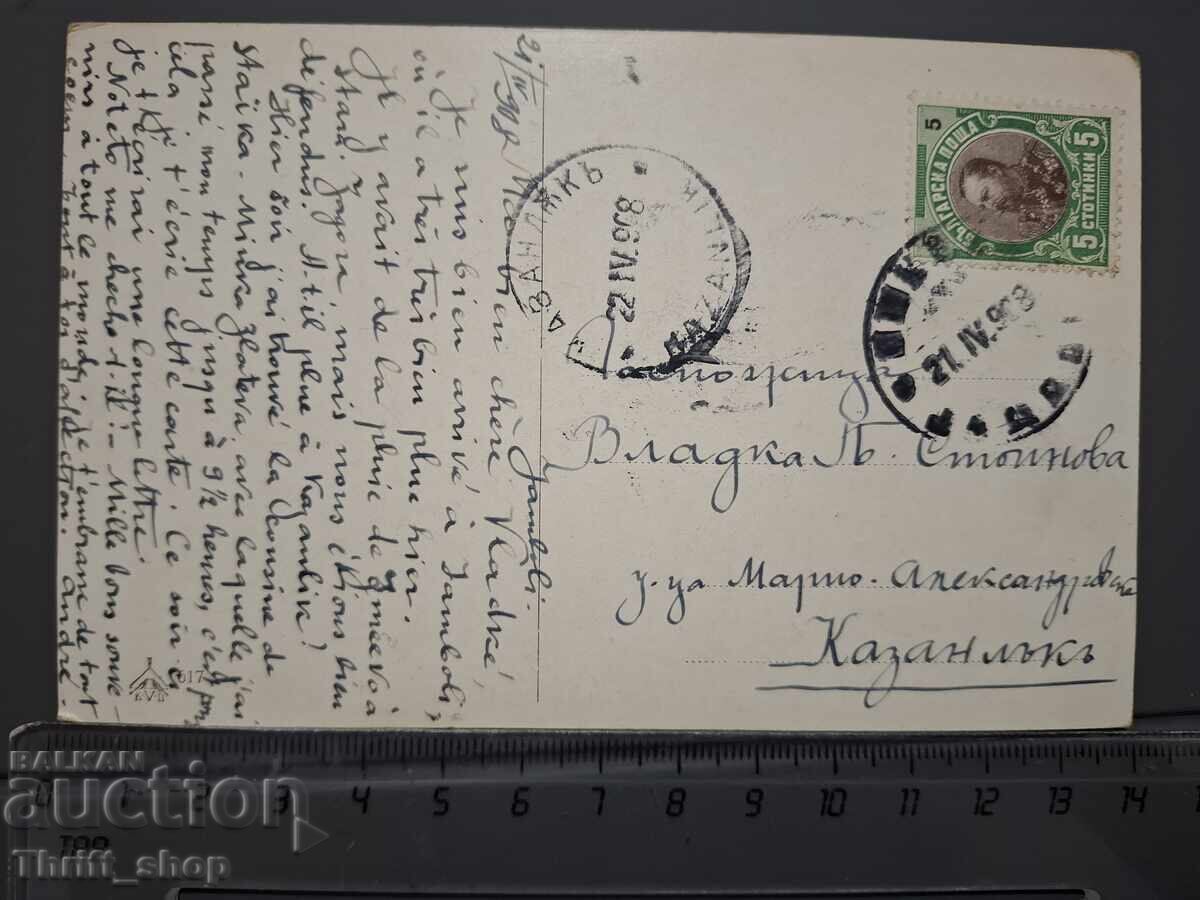 21/IV 908 Jamboli.
Ma bien chère Vladké,
Je suis bien arrivé à Jamboli,
où il a très très bien plue hier.
Il y avait de la pluie de Zmeevo à
Stara Zagora, mais nous étions bien
défendus. A-t-il plue à Kazanlik?
Hier soir j'ai trouvé la cousine de
Staïka - Minka Zlateva, avec laquelle j'ai
passé mon temps jusqu'à 9 1/2 heures, c'est pour
cela je t'écris cette carte. Ce soir
je t'écrirai une longue lettre.
Mille bons souve-
nirs à tout le monde, je t'embrasse de tout
coeur, tout à ton affection. André.
K V B
617
КАЗАНЛЪКЪ
22 IV. 908
KAZANLIK
21. IV. 908
БЪЛГАРСКА ПОЩА
5
5 СТОТИНКИ 5
Госпожица
Владка П. Стоинова
у-ца Марио-Александровска
Казанлъкъ
0 1 2 3 4 5 6 7 8 9 10 11 12 13 14
BALKAN
auction
Thrift_shop